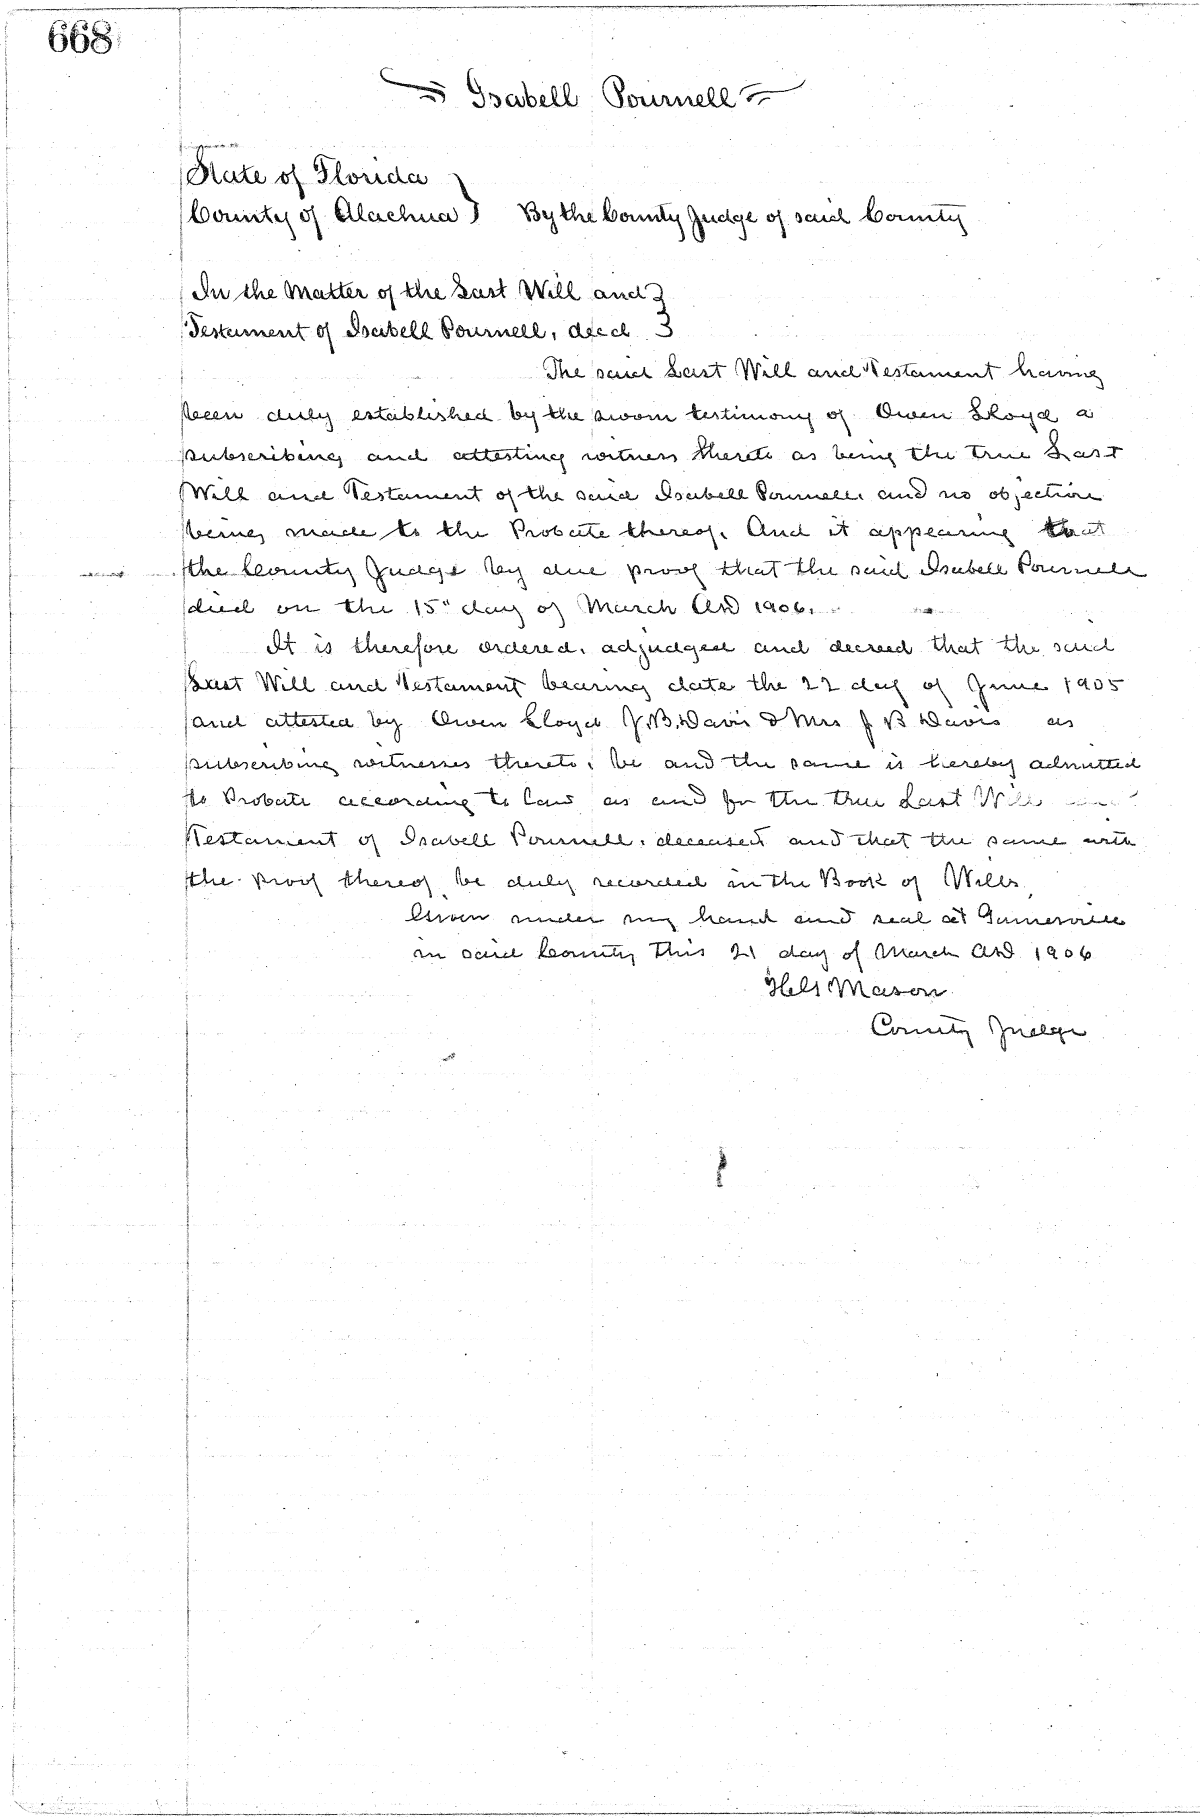 668
Isabell Pournell
State of Florida
County of Alachua } By the County Judge of said County
In the Matter of the Last Will and }
Testament of Isabell Pournell, decd }
The said Last Will and Testament having
been duly established by the sworn testimony of Owen Lloyd a
subscribing and attesting witness thereto as being the true Last
Will and Testament of the said Isabell Pournell, and no objection
being made to the Probate thereof. And it appearing to
the County Judge by due proof that the said Isabell Pournell
died on the 15" day of March AD 1906.
It is therefore ordered, adjudged and decreed that the said
Last Will and Testament bearing date the 22 day of June 1905
and attested by Owen Lloyd J.B. Davis & Mrs J B Davis as
subscribing witnesses thereto, be and the same is hereby admitted
to Probate according to law as and for the true Last Will and
Testament of Isabell Pournell, deceased and that the same with
the proof thereof be duly recorded in the Book of Wills
Given under my hand and seal at Gainesville
in said County this 21 day of March AD 1906
Mason
County Judge